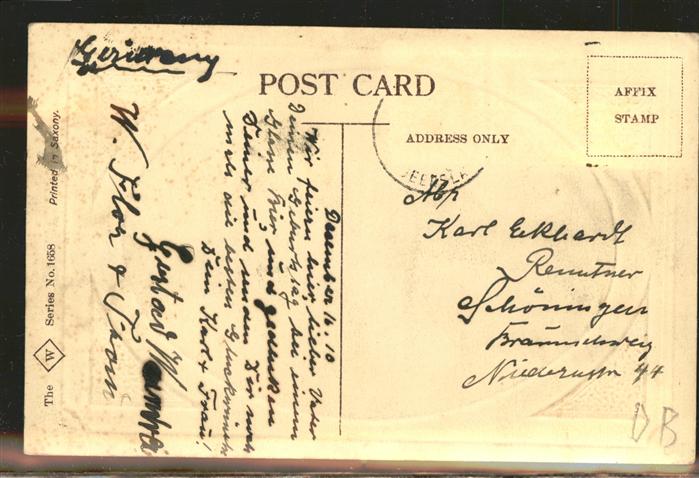 Germany
POST CARD
AFFIX
STAMP
ADDRESS ONLY
Karl Eckhardt
Renntner
Schöningen
Braunschweig
Niedernstr 44
DB
December 16. 10
Wir feiern hier, lieber Vater
Deinen Geburtstag bei einem
Glase Bier und gedenken
Deiner und senden Dir noch
mals die besten Glückwünsche
Dein Karl & Frau!
Gustav
W. & Frau
Printed in Saxony.
The W Series No. 1658